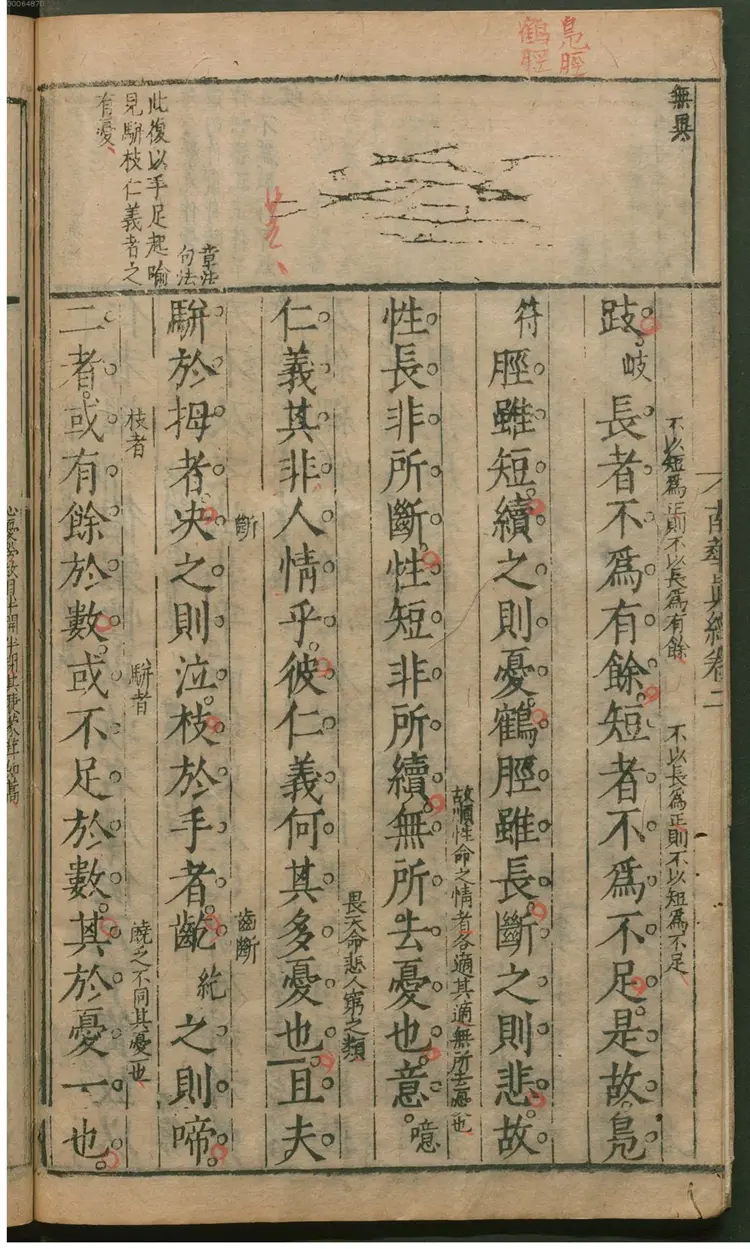 00064870
鳧脛
鶴脛
無異
章法
句法
此復以手足起喻
見駢枝仁義者之
有憂
南華眞經卷二
不以短爲正則不以長爲有餘
不以長爲正則不以短爲不足
跂岐長者不爲有餘短者不爲不足是故鳧
符脛雖短續之則憂鶴脛雖長斷之則悲故
故順性命之情者各適其適無所去憂也
性長非所斷性短非所續無所去憂也意噫
畏天命悲人窮之類
仁義其非人情乎彼仁義何其多憂也且夫
斷
齒斷
駢於拇者决之則泣枝於手者齕紇之則啼
枝者
駢者
曉之不同其憂一也
二者或有餘於數或不足於數其於憂一也